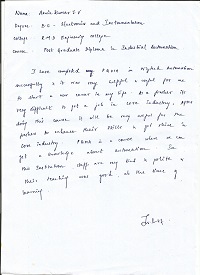 Name : Arun Kumar S.V
Degree : B.E - Electronics and Instrumentation
College : R.M.D Engineering college
Course : Post Graduate Diploma in Industrial Automation
I have completed my PGDIA in
successfully & it was very helpful & useful for me
to start a new career in my life. As a fresher its
very difficult to get a job in core industry, After
doing this course it will be very useful for the
freshers to enhance their skills & get shine in
core industry. PGDIA is a course where we can
get a knowledge about automation. In
this Institution staffs are very kind & polite &
their teaching was good, at the time of
training.